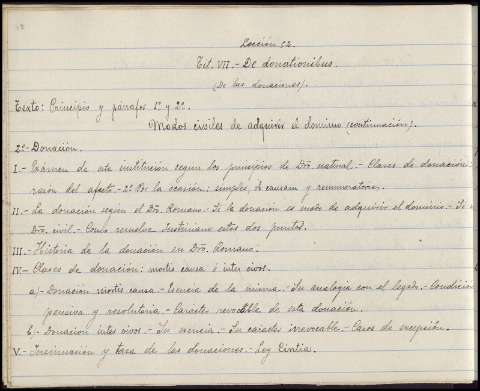 Lección 52.
Tit. VII.- De donationibus.
(De las donaciones).
Texto: Principio y párrafos 1º y 2º.
Modos civiles de adquirir el dominio (continuación).
2º- Donación.
I.- Exámen de esta institución segun los principios de Dro. natural.- Clases de donación:
razon del afecto.- 2º Por la ocasión: simples, ob causam y remuneratoria.
II.- La donación según el Dro. Romano.- Si la donación es modo de adquirir el dominio.-
Dro. civil.- Como resuelve Justiniano estos dos puntos.
III.- Historia de la donación en Dro. Romano.
IV.- Clases de donación: mortis causa é inter vivos.
a)- Donación mortis causa.- Esencia de la misma.- Su analogía con el legado.- Condición
pensiva y resolutoria.- Caracter revocable de esta donación.
b.- Donación inter vivos.- Su esencia.- Su carácter irrevocable.- Casos de excepción.
V.- Insinuación y tasa de las donaciones.- Ley Cintia.